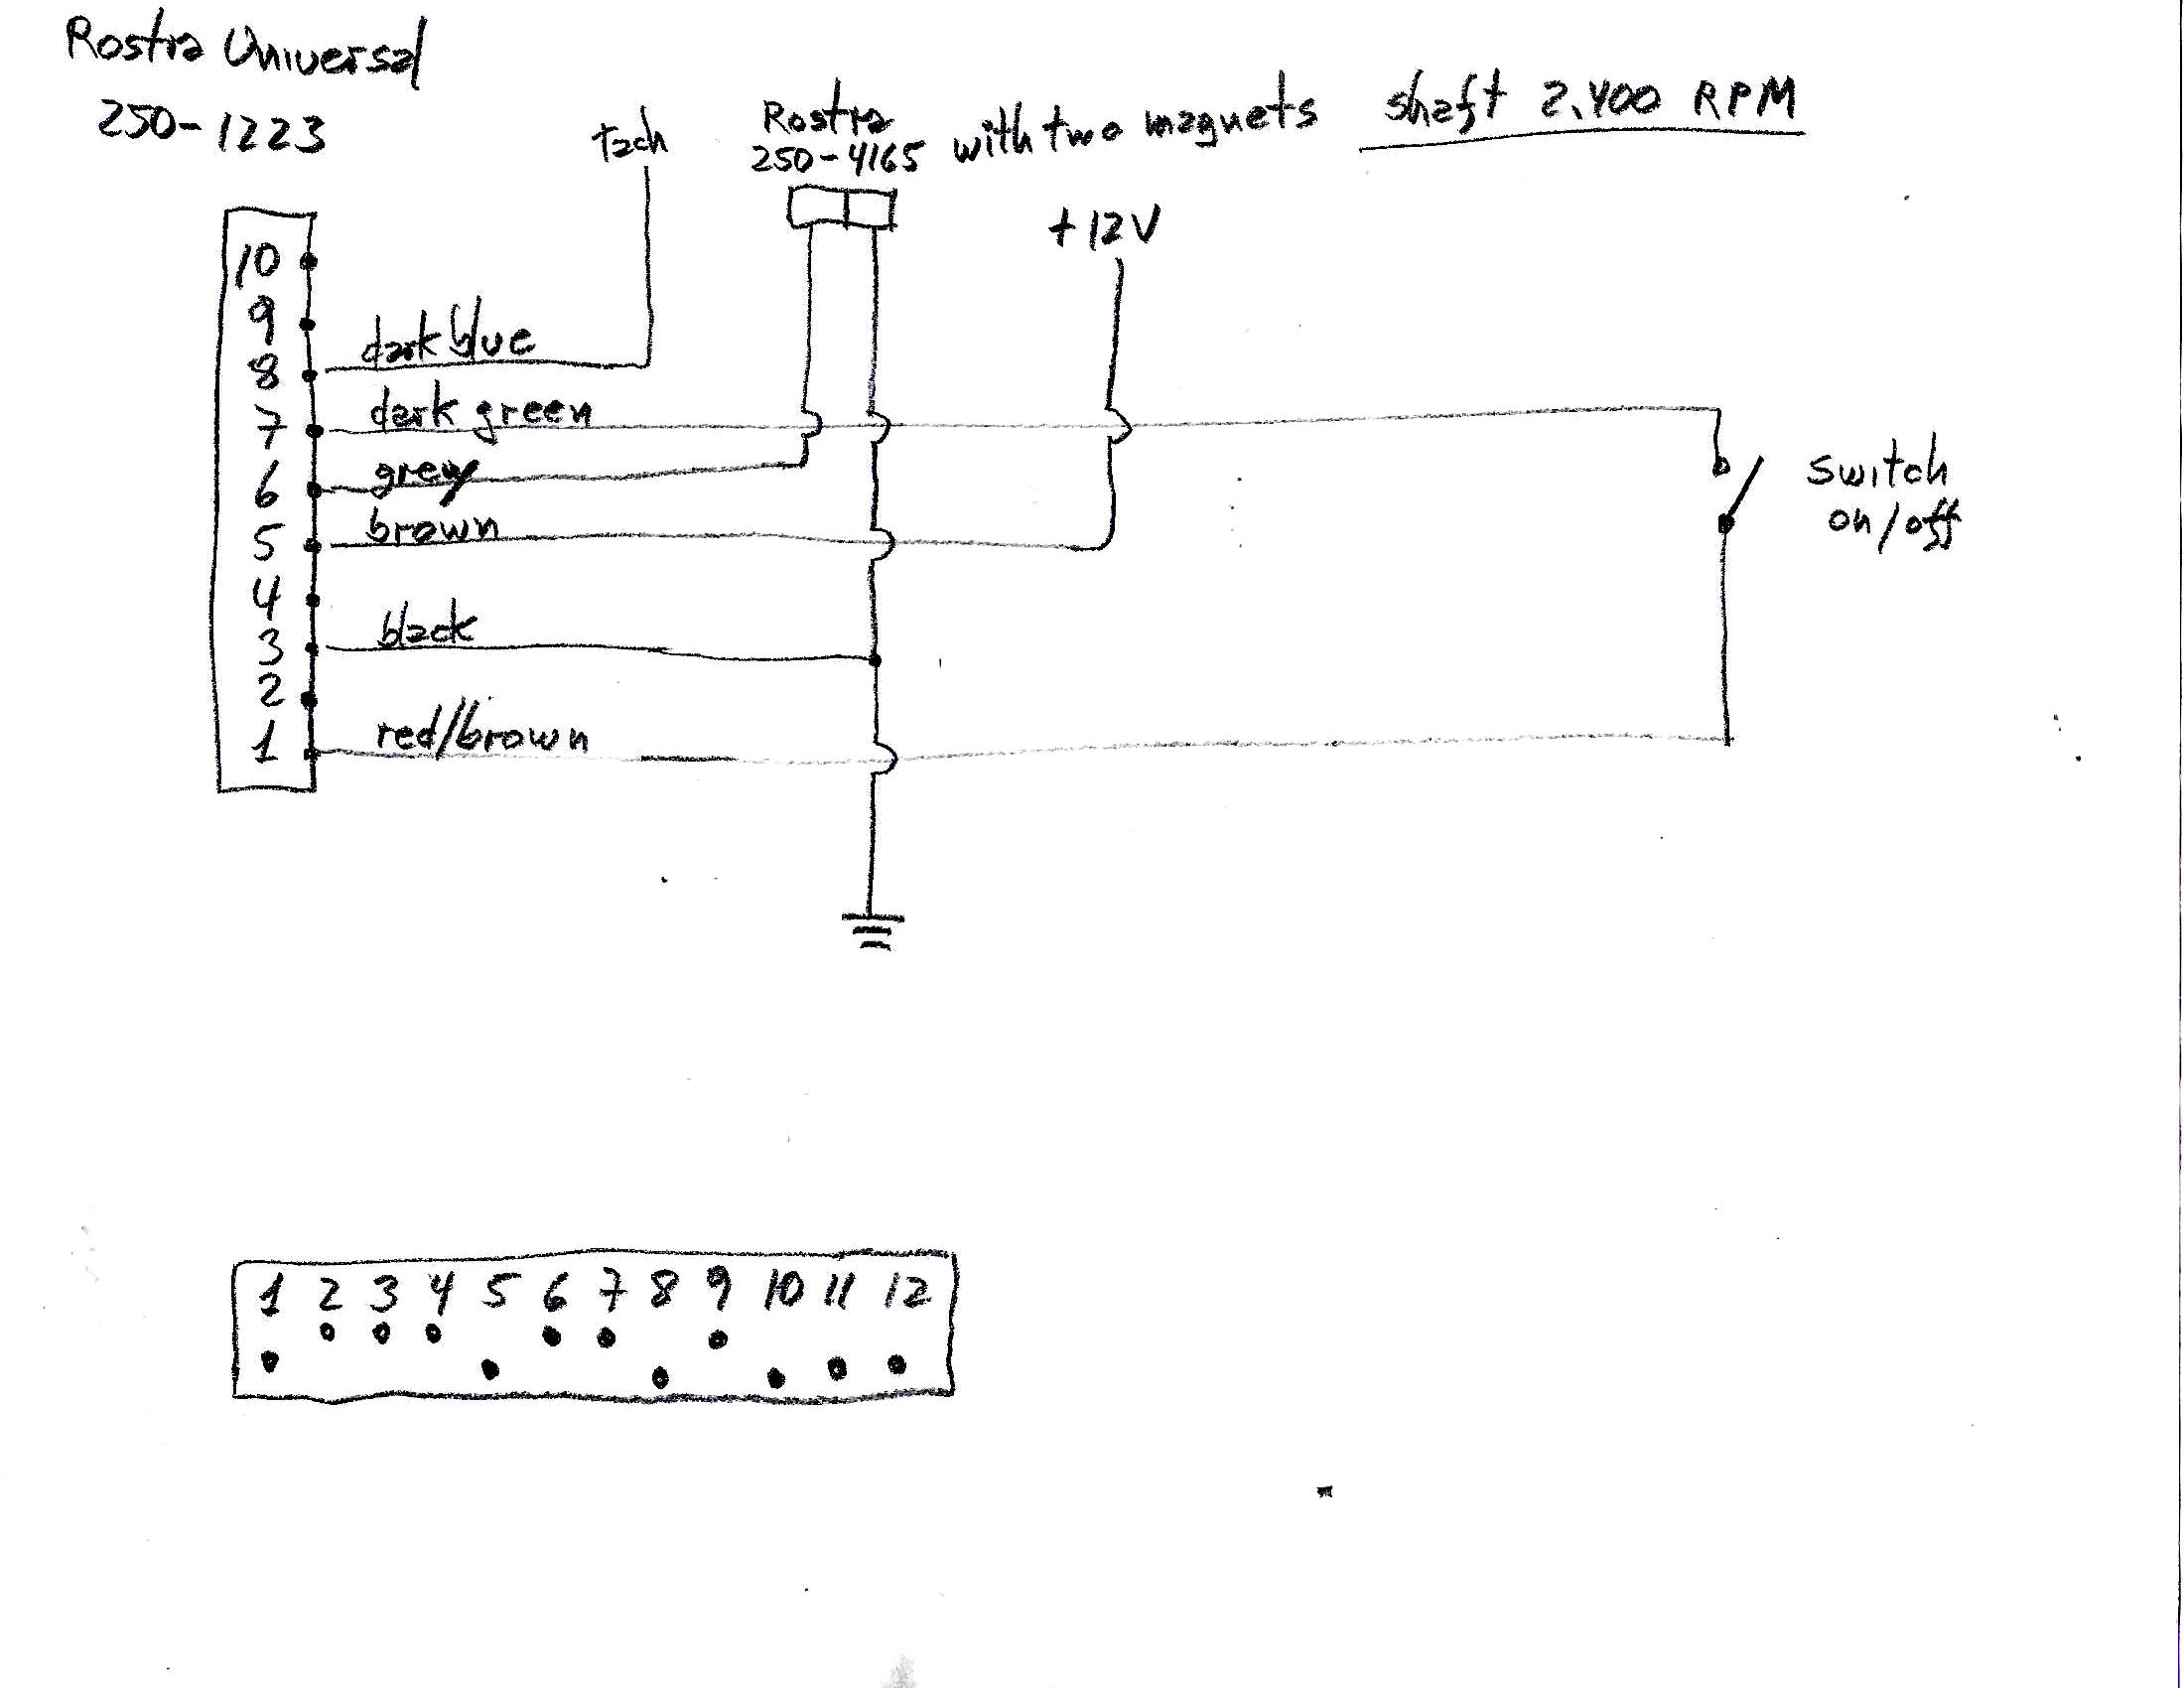 Rostra Universal
250-1223
tach
Rostra
250-4165
with two magnets
shaft 2,400 RPM
+12V
10
9
8 dark blue
7 dark green
6 grey
5 brown
4
3 black
2
1 red/brown
switch
on/off
1 2 3 4 5 6 7 8 9 10 11 12